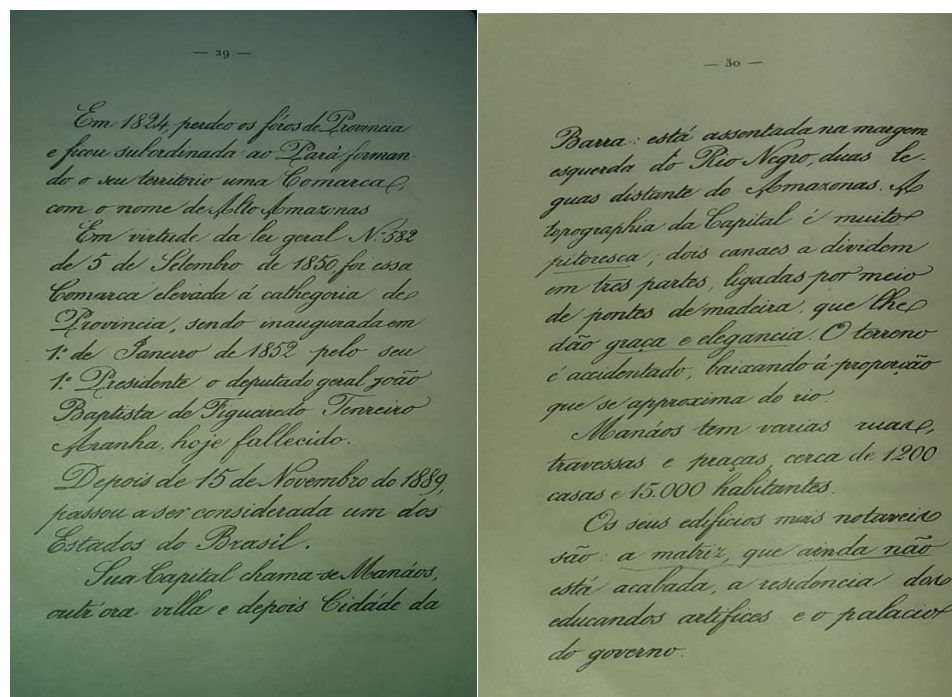 — 29 —
Em 1824, perdeo os fóros de Provincia
e ficou subordinada ao Pará forman-
do o seu territorio uma Comarca,
com o nome de Alto Amazonas
Em virtude da lei geral N.º 582
de 5 de Setembro de 1850, foi essa
Comarca elevada á cathegoria de
Provincia, sendo inaugurada em
1.º de Janeiro de 1852 pelo seu
1.º Presidente o deputado geral João
Baptista de Figueiredo Tenreiro
Aranha, hoje fallecido.
Depois de 15 de Novembro de 1889,
passou a ser considerada um dos
Estados do Brasil.
Sua Capital chama-se Manáos,
outr'ora villa e depois Cidáde da
— 30 —
Barra: está assentada na margem
esquerda do Rio Negro, duas le-
guas distante do Amazonas. A
topographia da Capital é muito
pitoresca; dois canaes a dividem
em tres partes, ligadas por meio
de pontes de madeira, que lhe
dão graça e elegancia. O terreno
é accidentado, baixando á proporção
que se approxima do rio.
Manáos tem varias ruas,
travessas e praças, cerca de 1200
casas e 15.000 habitantes.
Os seus edificios mais notaveis
são: a matriz, que ainda não
está acabada, a residencia dos
educandos artifices e o palacio
do governo.